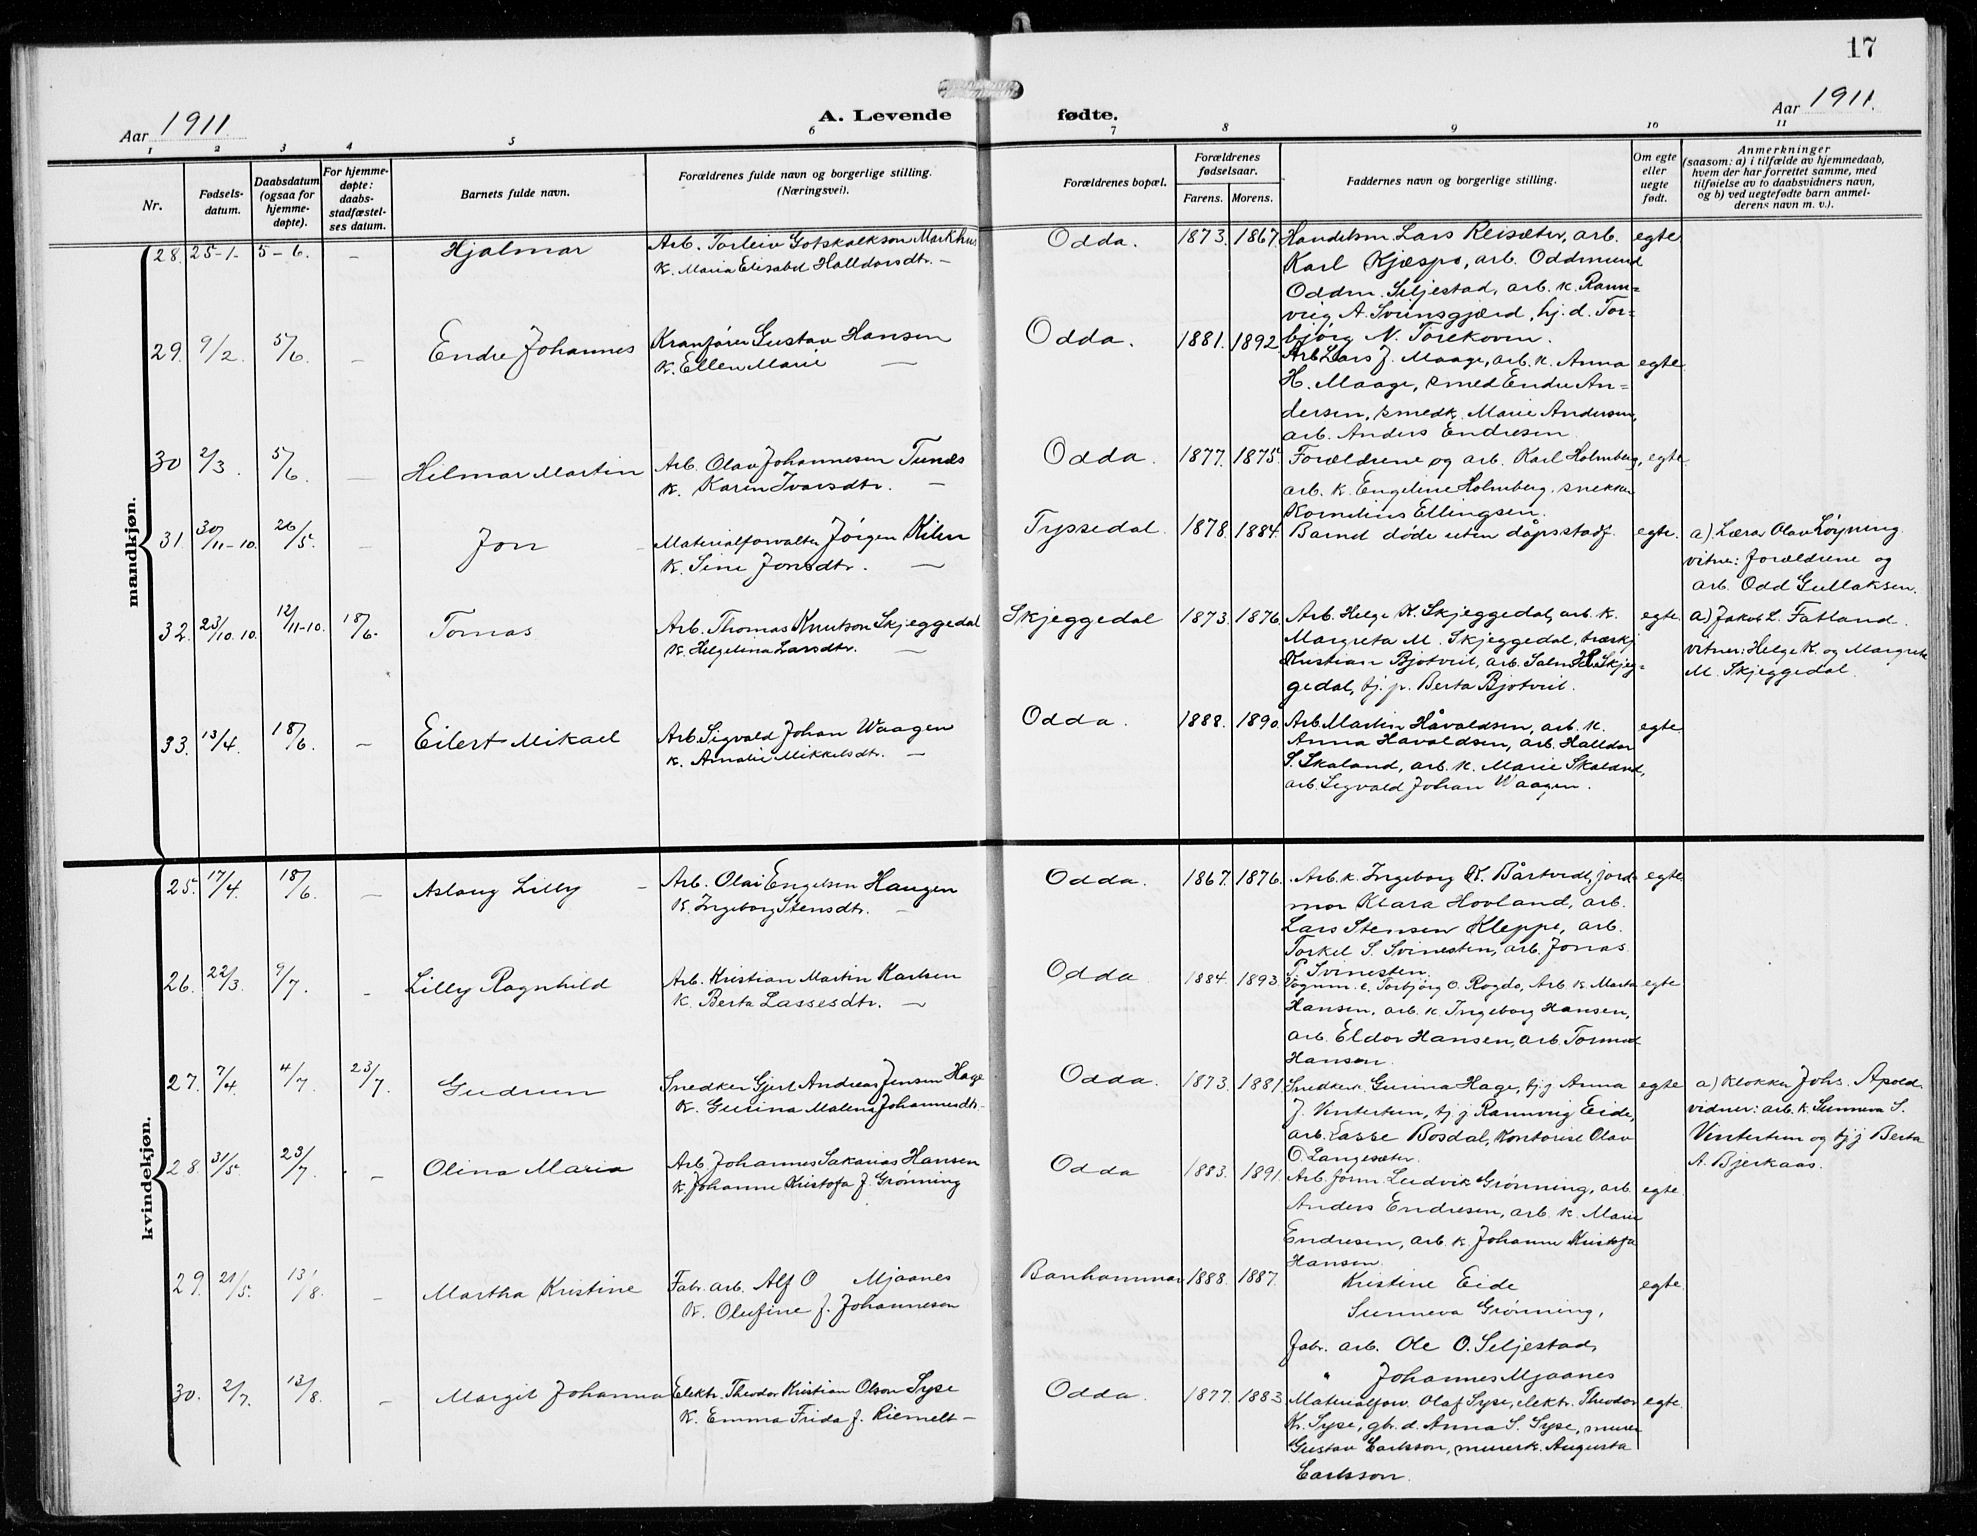 17
Aar 1911.
A. Levende fødte.
Aar 1911.
1 2 3 4 5 6 7 8 9 10 11
Nr.
Fødsels-
datum.
Daabsdatum
(ogsaa for
hjemme-
døpte).
For hjemme-
døpte:
daabs-
stadfæstel-
ses datum.
Barnets fulde navn.
Forældrenes fulde navn og borgerlige stilling.
(Næringsvei).
Forældrenes bopæl.
Forældrenes
fødselsaar.
Farens. Morens.
Faddernes navn og borgerlige stilling.
Om egte
eller
uegte
født.
Anmerkninger
(saasom: a) i tilfælde av hjemmedaab,
hvem der har forrettet samme, med
tilføielse av to daabsvidners navn,
og b) ved uegtefødte barn anmel-
derens navn m. v.).
mandkjøn.
28. 25-1- 5-6. – Hjalmar
Arb. Torleiv Gotskalkson Markhus
K. Maria Elisabet Halldorsdtr. –
Odda. 1873. 1867.
Handelsm. Lars Reisæter, arb.
Karl Kjæspo, arb. Oddmund
Oddm. Seljestad, arb. k. Rann-
veig A. Svinsgjærd, hj. d. Tor-
bjørg N. Torekoven.
egte
29. 9/2. 5/6. – Endre Johannes
Kranfører Gustav Hansen
K. Ellen Marie –
Odda. 1881. 1892
Arb. Lars J. Maage, arb. k. Anna
H. Maage, smed Endre An-
dersen, smedk. Marie Andersen,
arb. Anders Endresen
egte
30 2/3. 5/6. – Hilmar Martin
Arb. Olav Johannesen Tunes
K. Karen Ivarsdtr. –
Odda. 1877. 1875.
Forældrene og arb. Karl Holmberg,
arb. k. Engeline Holmberg. snekker
Kornelius Ellingsen.
egte
31. 30/11-10. 26/5. – Jon
Materialforvalter Jørgen Kilen
K. Sine Jonsdtr. –
Tyssedal. 1878. 1884.
Barnet døde uten dåpsstadf.
egte.
a) Lærar Olav Løyning
vitne: Forældrene og
arb. Odd Gullaksen.
32. 23/10.10. 12/11-10. 18/6. Tomas
Arb. Thomas Knutson Skjeggedal
K. Helgelina Larsdtr. –
Skjeggedal 1873. 1876.
Arb. Helge K. Skjeggedal, arb. k.
Margreta M. Skjeggedal, træskj
Kristian Bjotveit, arb. Skjeg-
gedal, tj. p. Berta Bjotveit.
egte
a) Jakob L. Fatland.
vitner: Helge K. og Margreta
M. Skjeggedal.
33. 13/4. 18/6. – Eilert Mikael
Arb. Sigvald Johan Waagen
K. Amalie Mikkelsdtr. –
Odda. 1888. 1890.
Arb. Martin Håvaldsen, arb. k.
Anna Havaldsen, arb. Halldor
S. Skaland, arb. k. Marie Skaland,
arb. Sigvald Johan Waagen.
egte
kvindekjøn.
25. 17/4. 18/6. – Aslaug Lilly –
Arb. Olai Engelsen Haugen
K. Ingeborg Stensdtr. –
Odda. 1867. 1876.
Arb. k. Ingeborg K. Bårtvedt, jord-
mor Klara Hovland, arb.
Lars Stensen Kleppe, arb.
Torkel S. Svinesten, arb. Jonas
T. Svinesten.
egte
26. 22/3. 9/7. – Lilly Ragnhild
Arb. Kristian Martin Karlsen
K. Berta Lassesdtr. –
Odda 1884. 1893.
Vognm. e. Torbjørg O. Ragde, Arb k. Marta
Hansen, arb. k. Ingeborg Hansen,
arb. Eldor Hansen, arb. Tormod
Hansen.
egte
27. 7/4. 4/7. 23/7. Gudrun
Snedker Gjert Andreas Jensen Hage
K. Gurina Malena Johannesdtr.
Odda. 1873. 1881.
Snedkerk. Gurina Hage, tj.j Anna
J. Vintertun, tj.j Rannveig Eide,
arb. Lasse Bosdal, kontorist Olav
O. Langesæter.
egte
a) klokker Johs. Apold.
vidner: arb. k. Sunneva S.
Vintertun og tj.j Berta
A. Bjerkaas.
28. 31/5. 23/7. – Olina Maria
Arb Johannes Sakarias Hansen
K. Johanne Kristofa f. Grønning
Odda 1883. 1891.
Arb. form. Ludvik Grønning, arb.
Anders Endresen, arb. k. Marie
Endresen, arb. k. Johanne Kristofa
Hansen.
egte.
29. 21/5. 13/8. – Martha Kristine
Fabr. arb. Alf O Mjaanes
K. Olufine f. Johannesen
Banhammar 1888. 1887.
Kristine Eide
Sunneva Grønning,
Fabr. arb. Ole O. Seljestad,
" Johannes Mjaanes
egte.
30. 2/7. 13/8. – Margit Johanna
Elektr. Theodor Kristian Olson Syse
K. Emma Frida f. Riemelt –
Odda. 1877. 1883.
Materialforv. Olaf Syse, elektr. Theodor
Kr. Syse, gbr. d. Anna S. Syse, murer
Gustav Carlsson, murerk. Augusta
Carlsson.
egte.